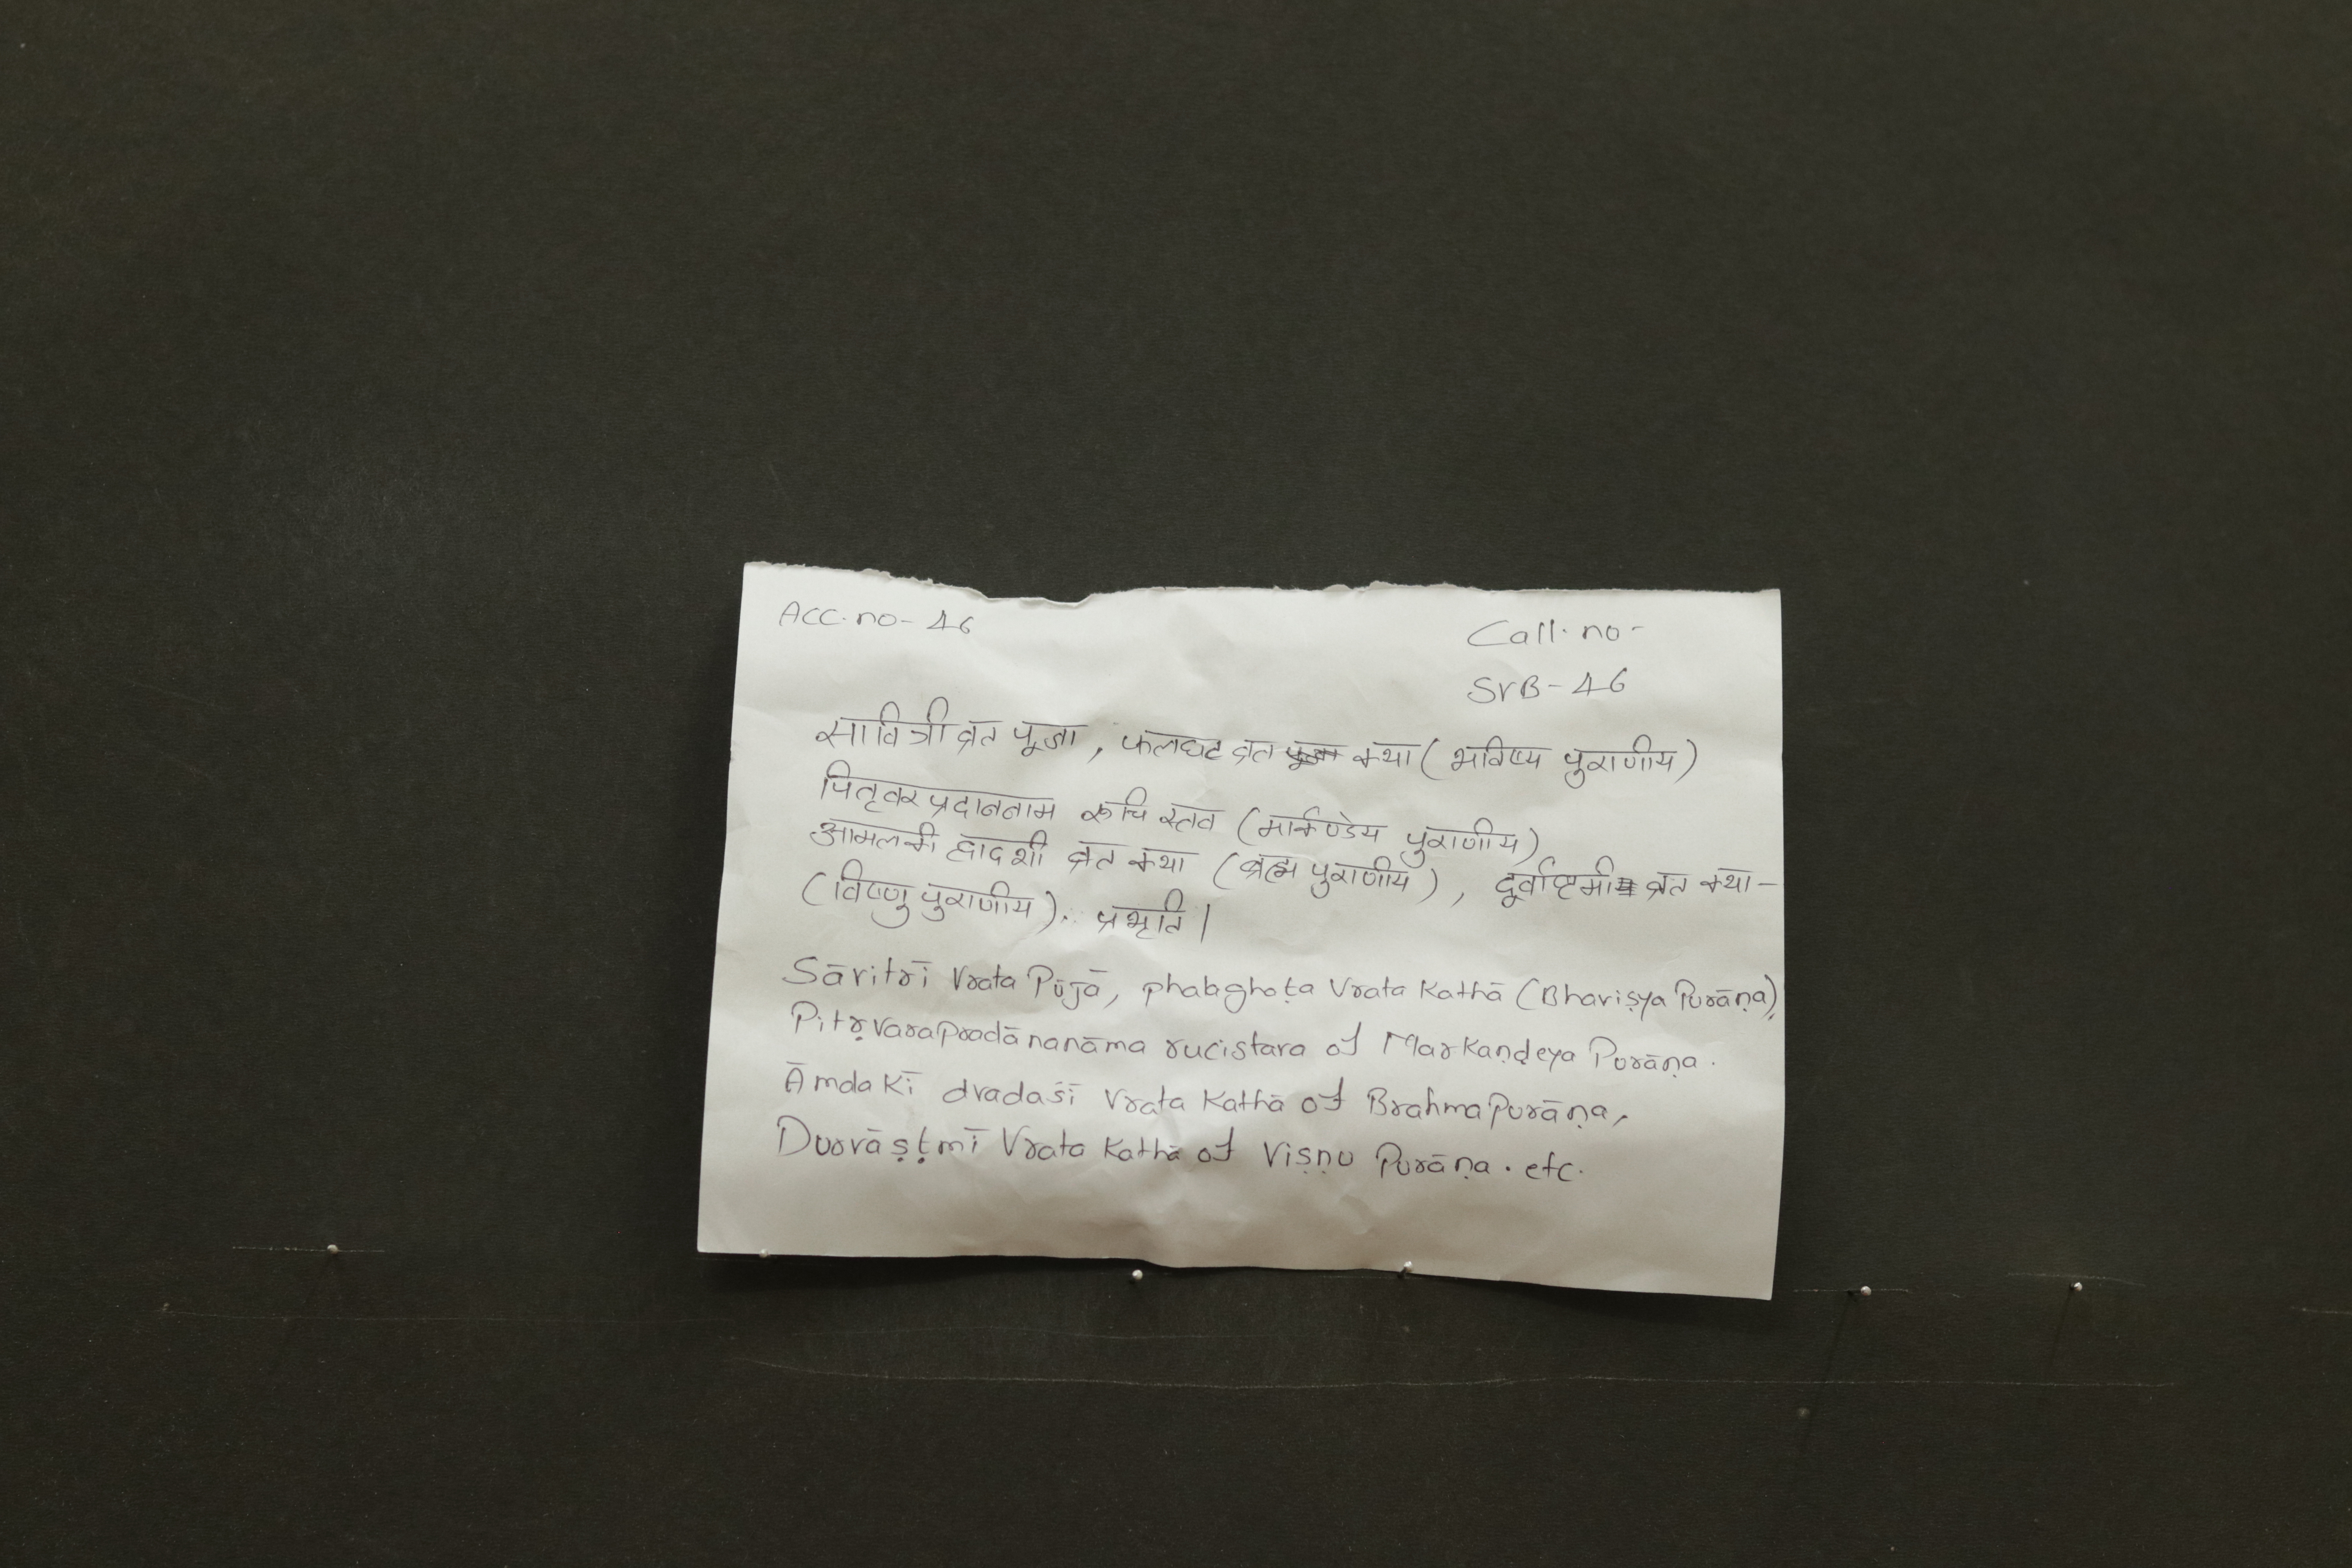 Acc. no- 46
Call. no-
SVB-46
सावित्री व्रत पूजा, फलघट व्रत कथा (भविष्य पुराणीय)
पितृवर प्रदाननाम रूचि स्तव (मार्कण्डेय पुराणीय)
आमलकी द्वादशी व्रत कथा (ब्रह्म पुराणीय), दूर्वाष्टमी व्रत कथा-
(विष्णु पुराणीय).. प्रभृति।
Sāvitrī Vrata Pūjā, phalaghaṭa Vrata Kathā (Bhaviṣya Purāṇa),
Pitṛvarapradānanāma rucistava of Markaṇḍeya Purāṇa.
Āmdakī dvadaśī Vrata Kathā of Brahmapurāṇa,
Durvāṣṭmī Vrata Kathā of Viṣṇu Purāṇa. etc.